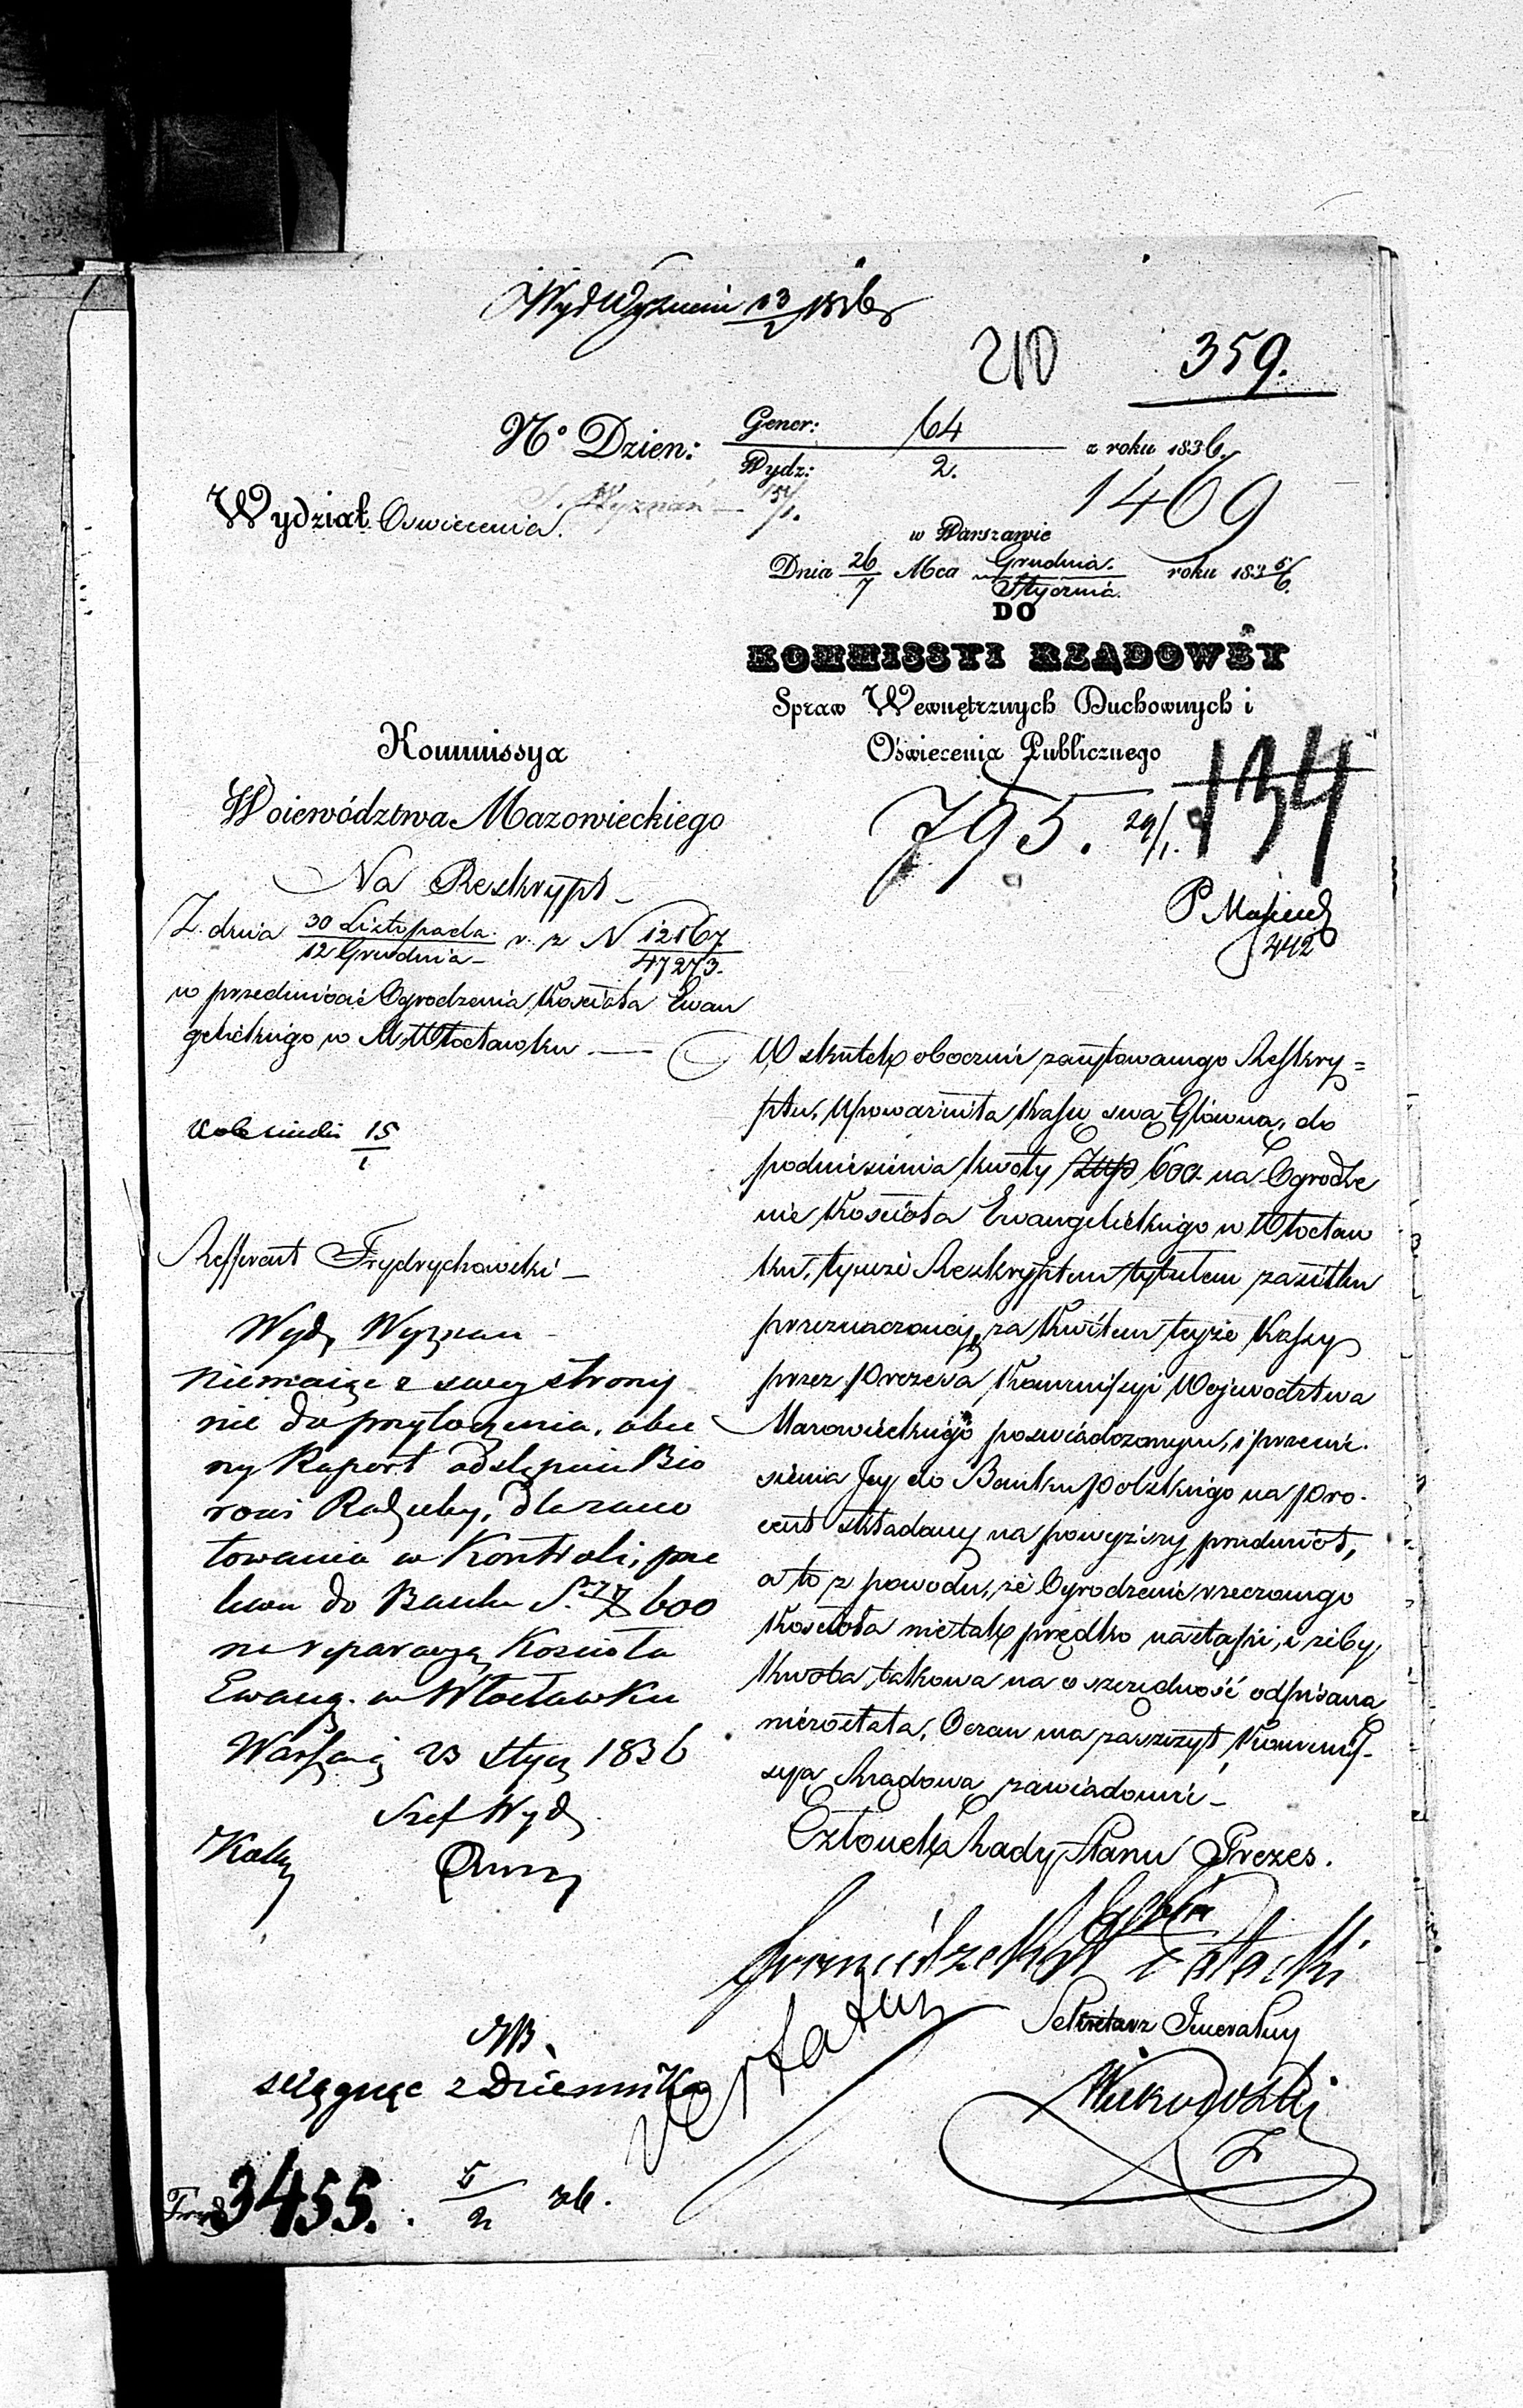 Wyd Wyznań 13/2 1836
210 359.
N° Dzien: Gener: 64 z roku 1836.
Wydz: 2.
1469
Wydział Oswiecenia. Wyznań
w Warszawie
Dnia 26/7 Mca Grudnia./Stycznia. roku 1835/6.
DO
KOMMISSYI RZĄDOWEY
Spraw Wewnętrznych Duchownych i
Oświecenia Publicznego
134
795. 29/1.
442
Kommissya
Woiewództwa Mazowieckiego
Na Reskrypt
Z dnia 30 Listopada/12 Grudnia r. z N 12167/47273.
w przedmiocie Ogrodzenia Kościoła Ewan
gelickiego w M. Włocławku
15/1
Refferent Frydrychowski
Wydz Wyznan
Niemaiąc z swey strony
nic do przytoczenia, obec
ny Raport odstępuie Bió
rowi Rachuby, dla zano
towania w Kontroli, prze
lewu do Banku S. Z 600
na reparacyą Kościoła
Ewang. w Włocławku
Warszawa 23 stycz 1836
Szef Wydz
W skutek obocznie zacytowanego Reskry=
ptu, Upoważniła Kassę swą Główną, do
podniesienia kwoty Złp 600 na Ogrodze
nie Kościoła Ewangelickiego w Włocław
ku, tymże Reskryptem tytułem zasiłku
przeznaczoney, za Kwitem teyże Kassy
przez Prezesa Kommissyi Województwa
Mazowieckiego poswiadczonym, i przenie
sienia Jey do Banku Polskiego na pro
cent składany na powyższy przedmiot,
a to z powodu, że Ogrodzenie rzeczonego
Kościoła nie tak prędko nastąpi, i żeby
kwota takowa na oszczędność odpisana
niezostała, Oczem ma zaszczyt Kommis
syą Rządową zawiadomić
Członek Rady Stanu Prezes.
Sekretarz Jeneralny
NB.
sciągnąć z Dziennika
vertatur
3455. 5/2 36.